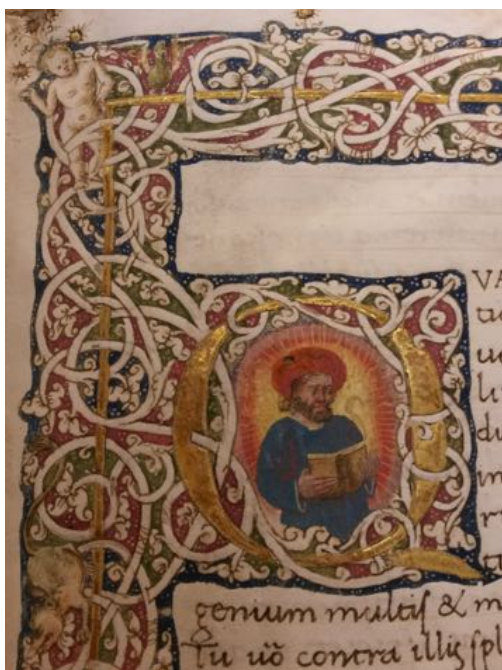 QVA
lu
du
in
genium multiſ & m
Tu uõ contra illiſ ſpl